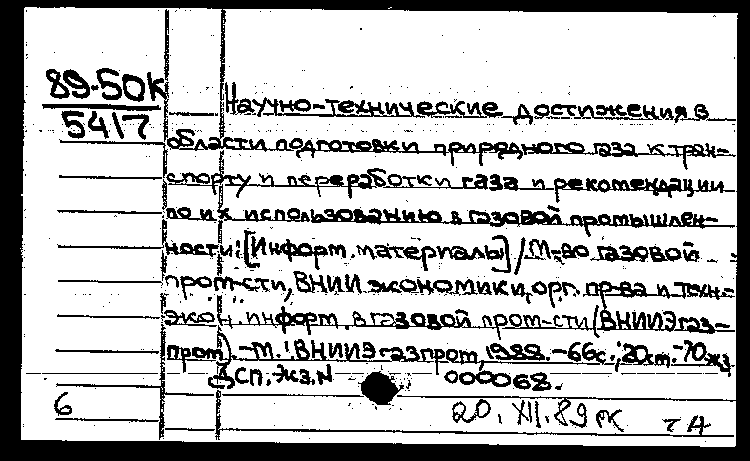 89-50К
5417
Научно-технические достижения в
области подготовки природного газа к тран-
спорту и переработки газа и рекомендации
по их использованию в газовой промышлен-
ности: [Информ. материалы] / М-во газовой
пром-сти, ВНИИ экономики, орг. пр-ва и техн.-
экон. информ. в газовой пром-сти (ВНИИЭгаз-
пром). - М.: ВНИИЭгазпром, 1988. - 66с.; 20см. - 70к
ДСП. Экз. N 000068.
6
20. XII. 89